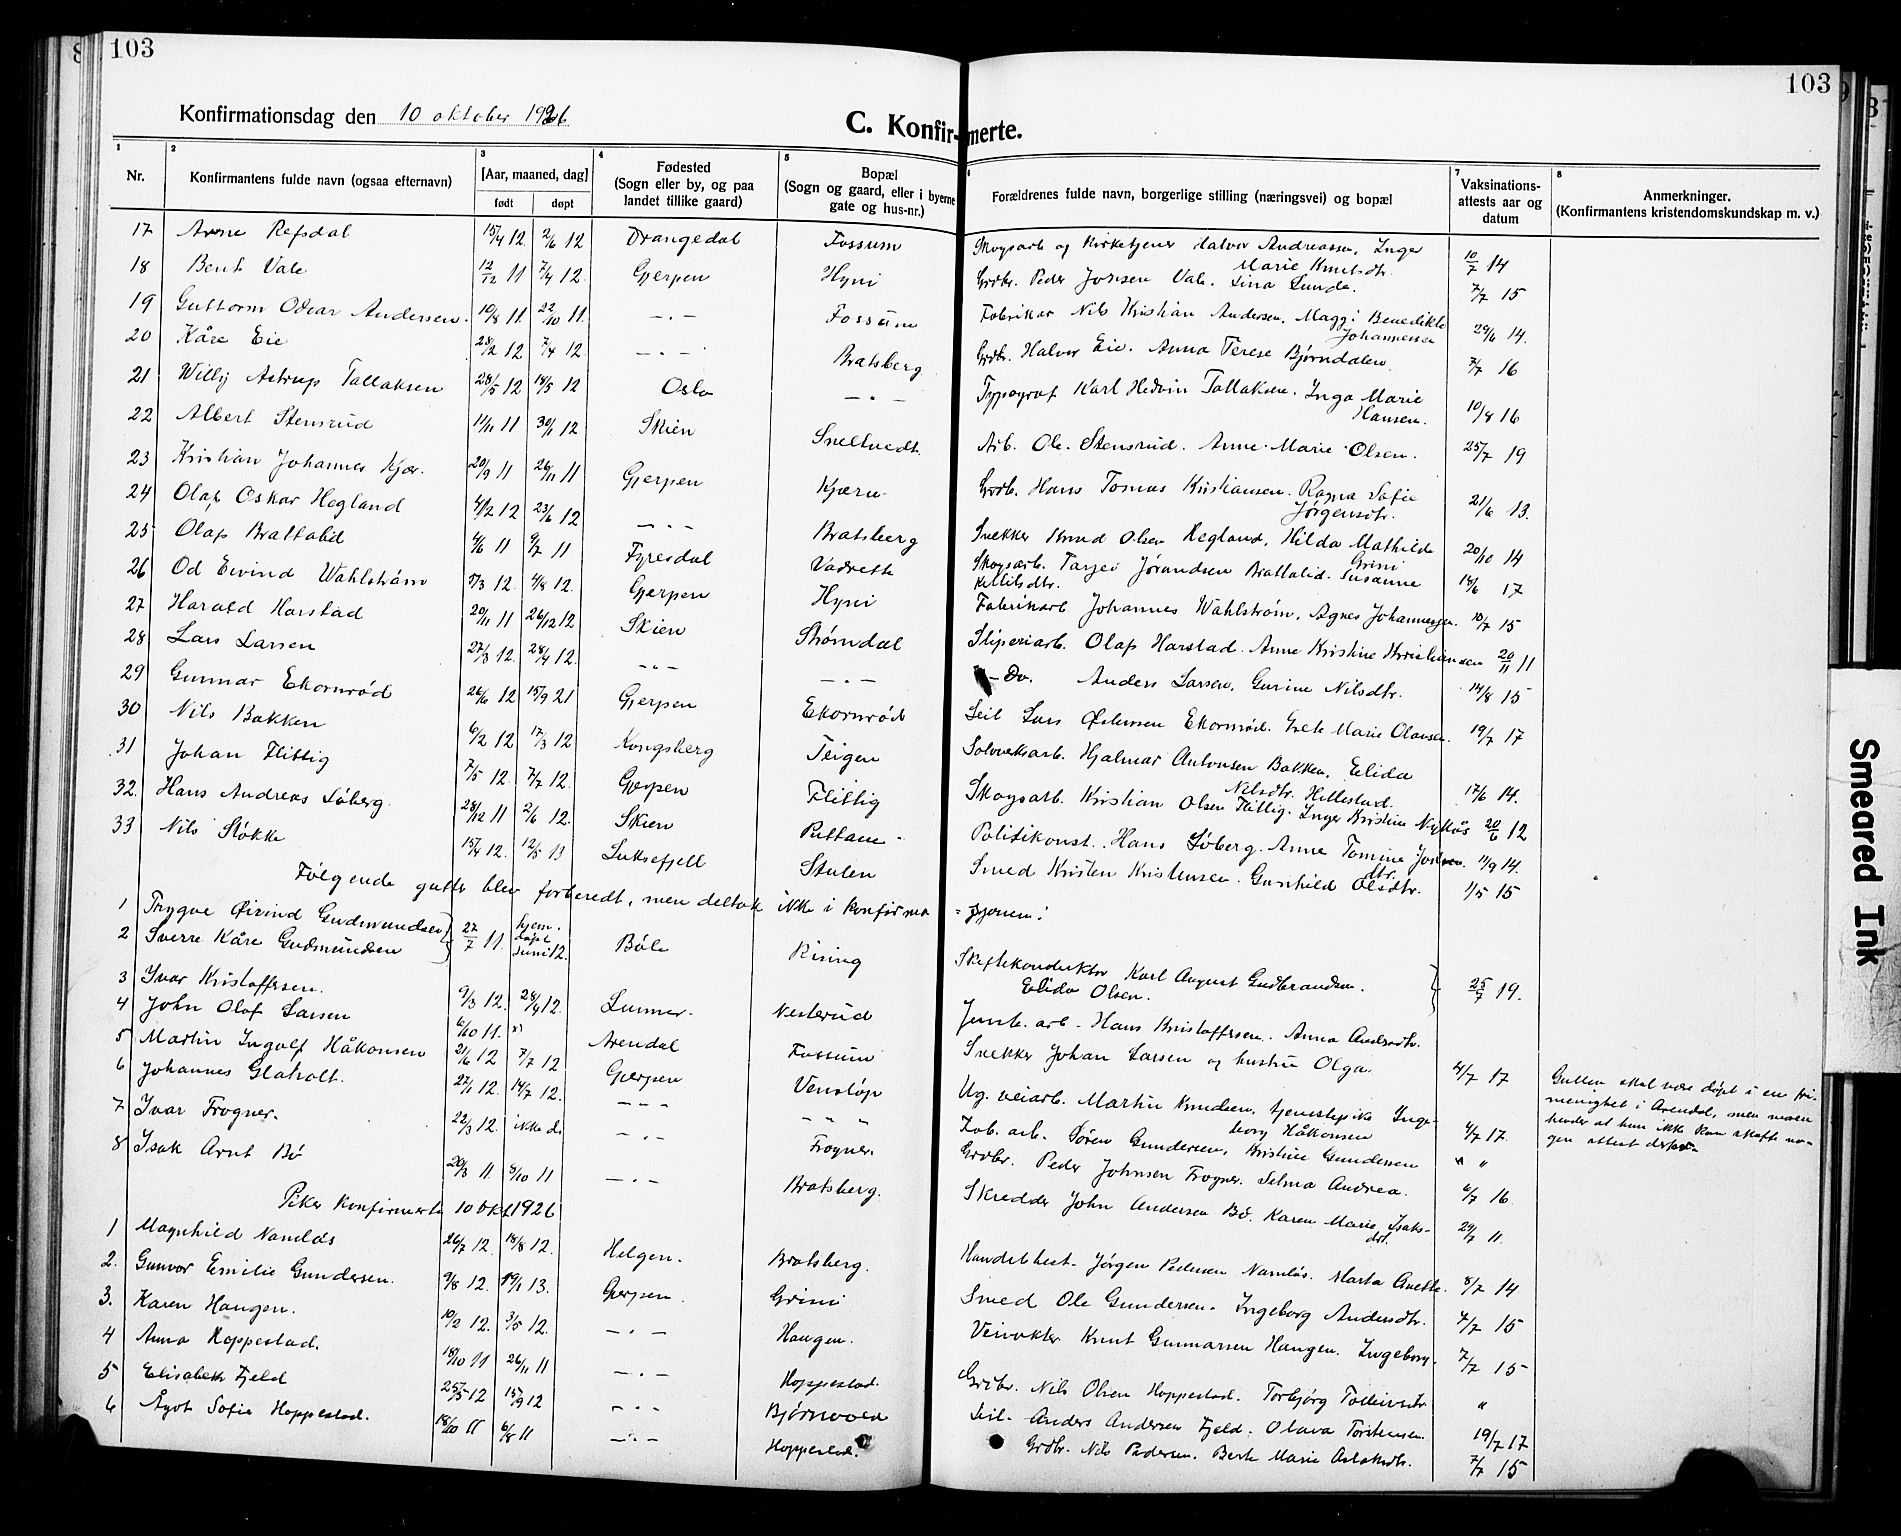 103
103
Konfirmationsdag den 10 oktober 1926
C. Konfirmerte.
1 2 3 4 5 6 7 8
Nr. Konfirmantens fulde navn (ogsaa efternavn) [Aar, maaned, dag] født døpt Fødested (Sogn eller by, og paa landet tillike gaard) Bopæl (Sogn og gaard, eller i byerne gate og hus-nr.) Forældrenes fulde navn, borgerlige stilling (næringsvei) og bopæl Vaksinations-attests aar og datum Anmerkninger. (Konfirmantens kristendomskundskap m. v.)
17 Arne Refsdal 15/4 12 2/6 12 Drangedal Fossum Skogsarb og Kirketjener Halvor Andreassen, Inger Marie Knutsdtr. 10/7 14
18 Bent Vale 12/12 11 7/4 12. Gjerpen Hyni Grdbr. Peder Johsen Vale. Lina Lunde. 7/7 15
19 Guttorm Odvar Andersen. 10/8 11 22/10 11. -.- Fossum Fabrikar Nils Kristian Andersen. Maggi Benedikte Johannessen 29/6 14.
20 Kåre Eie 28/2 12 7/4 12. -.- Bratsberg Grdb. Halvor Eie. Anna Terese Bjørndalen. 7/7 16
21 Willy Astrup Tallaksen 28/5 12 18/5 12 Oslo -.- Typograf Karl Hedvin Tallaksen. Inga Marie Hansen. 10/8 16
22 Albert Stensrud 11/11 11 30/1 12 Skien Sneltvedt. Arb. Ole Stensrud. Anne Marie Olsen. 25/7 19
23 Kristian Johannes Kjær. 20/9 11 26/11 11 Gjerpen Kjærn Grdb. Hans Tomas Kristiansen. Ragna Sofie Jørgensdtr. 21/6 13.
24 Olaf Oskar Hegland 4/2 12 23/6 12 -.- Bratsberg Snekker Knud Olsen Hegland, Hilda Mathilde Grini 20/10 14
25 Olaf Brattalid 4/6 11 9/7 11 Fyresdal Vadrette Skogsarb. Tarjei Jørundsen Brattalid. Susanne Ketilsdtr. 14/6 17
26 Od Eivind Wahlstrøm 5/3 12. 4/8 12. Gjerpen Hyni Fabrikarb Johannes Wahlstrøm. Agnes Johannessen. 10/7 15
27 Harald Harstad 20/11 11 26/12 12 Skien Strømdal Sliperiarb. Olaf Harstad. Anne Kristine Kristiansen 20/11 11
28 Lars Larsen 27/3 12. 28/4 12. -.- -.- -Do. Anders Larsen, Gurine Nilsdtr. 14/8 15
29 Gunnar Ekornrød 26/6 12 15/9 21 Gjerpen Ekornrød Leil Lars Østensen Ekornrød. Grete Marie Olausen. 19/7 17
30 Nils Bakken 6/2 12 17/3 12 Kongsberg Teigen Sølvverksarb. Hjalmar Antonsen Bakken, Elida Nilsdtr. Hillestad. 17/6 14.
31 Johan Flittig 7/5 12 7/7 12. Gjerpen Flittig Skogsarb. Kristian Olsen Flittig. Inger Kristine Nyklås 20/6 12
32. Hans Andreas Løberg. 28/12 11 2/6 12. Skien Ruttane Politikonst. Hans Løberg. Anne Tomine dtr. 11/9 14.
33 Nils Stokke 15/4 12. 12/5 13 Luksefjell Stulen Smed Kristen Kristensen. Gunhild Olsdtr. 1/5 15
Følgende gutter blev forberedt, men deltok ikke i konfirma=sjonen:
1 Trygve Øivind Gudmundsen } 27/7 11. hjem. døpt Juni 12. Bøle Rising Skiftekonduktør Karl August Gudbrandsen. Elida Olsen. } 25/7 19.
2 Sverre Kåre Gudmundsen
3 Ivar Kristoffersen. 9/3 12. 28/4 12. Lunner. Nesterud Jernb. arb - Hans Kristoffersen. Anna Andersdtr.
4 John Olaf Larsen 6/10 11. x) Arendal Fossum Snekker Johan Larsen og hustru Olga. 4/7 17 Gutten skal være døpt i en frimenighet i Arendal, men moren hender at hun ikke kan skaffe nogen attest derfor-
5 Martin Ingolf Håkonsen 21/6 12 7/7 12 Gjerpen Venstøp Ug. veiarb. Martin Knudsen, tjenestepike Ingeborg Håkonsen 4/7 17.
6 Johannes Glaholt. 27/1 12. 14/7 12. --- " " " Fab. arb. Søren Gundersen, Kristine Gundersen " "
7 Ivar Frogner. 22/3 12. ikke d. -.- Frogner. Grdbr. Peder Johnsen Frogner. Selma Andrea. 6/7 16.
8 Isak Arnt Bø 20/3 11 8/10 11 -.- Bratsberg. Skredder John Andersen Bø. Karen Marie Isaksdtr. 29/7 11.
Piker konfirmerte 10 Okt 1926
1 Magnhild Namløs 26/7 12. 18/8 12. Helgen. Bratsberg. Handelsbest. Jørgen Pedersen Namløs. Marta Anette. 8/7 14
2. Gunvor Emilie Gundersen. 9/8 12. 19/1 13. Gjerpen. Grini Smed Ole Gundersen. Ingeborg Andersdtr. 7/7 15
3. Karen Haugen. 10/2 12. 3/5 12. -.- Haugen. Veivokter Knut Gunnarsen Haugen. Ingeborg. 7/7 15
4 Anna Hoppestad. 18/10 11 26/11 11 -.- Hoppestad. Grdbr. Nils Olsen Hoppestad. Torbjørg Tolleivsdtr. "
5 Elisabeth Fjeld 25/5 12 15/9 12 -.- Bjørnved Leil. Anders Andersen Fjeld. Olava Torstensen. 19/7 17
6 Ågot Sofie Hoppestad. 18/10 11 6/8 11 -.- Hoppestad. Grdbr. Nils Pedersen. Berte Marie Aslaksdtr. 7/7 15
Smeared Ink